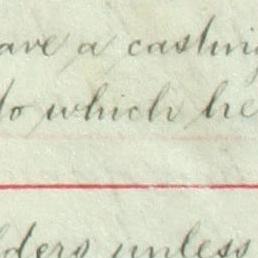 ave a casting
to which he
lders unless